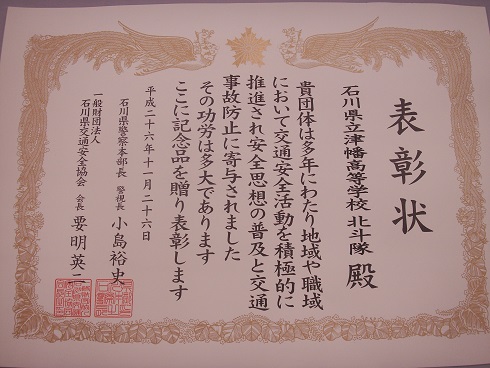 表彰状
石川県立津幡高等学校 北斗隊 殿
貴団体は多年にわたり地域や職域
において交通安全活動を積極的に
推進され安全思想の普及と交通
事故防止に寄与されました
その功労は多大であります
ここに記念品を贈り表彰します
平成二十六年十一月二十六日
石川県警察本部長 警視長 小島裕史
一般財団法人
石川県交通安全協会 会長 要明英二